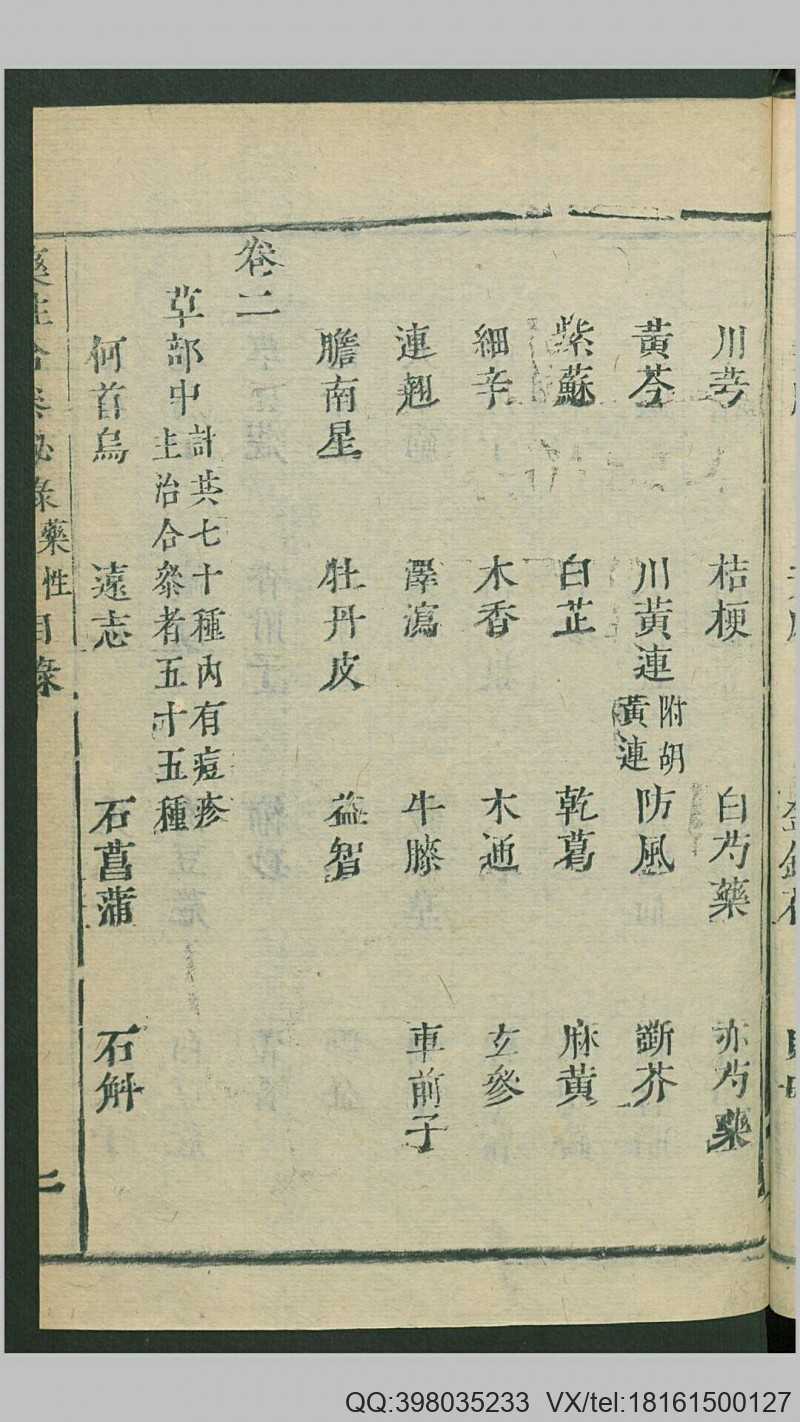 川芎　桔梗　白芍藥　赤芍藥
黃芩　川黃連附胡黃連　防風　斷芥
紫蘇　白芷　乾葛　麻黃
細辛　木香　木通　玄參
連翹　澤瀉　牛膝　車前子
膽南星　牡丹皮　益智
卷二
草部中計共七十種內有痘疹主治合參者五十五種
何首烏　遠志　石菖蒲　石斛
藥性合參祕錄藥性目錄
二
QQ:398035233 VX/tel:18161500127